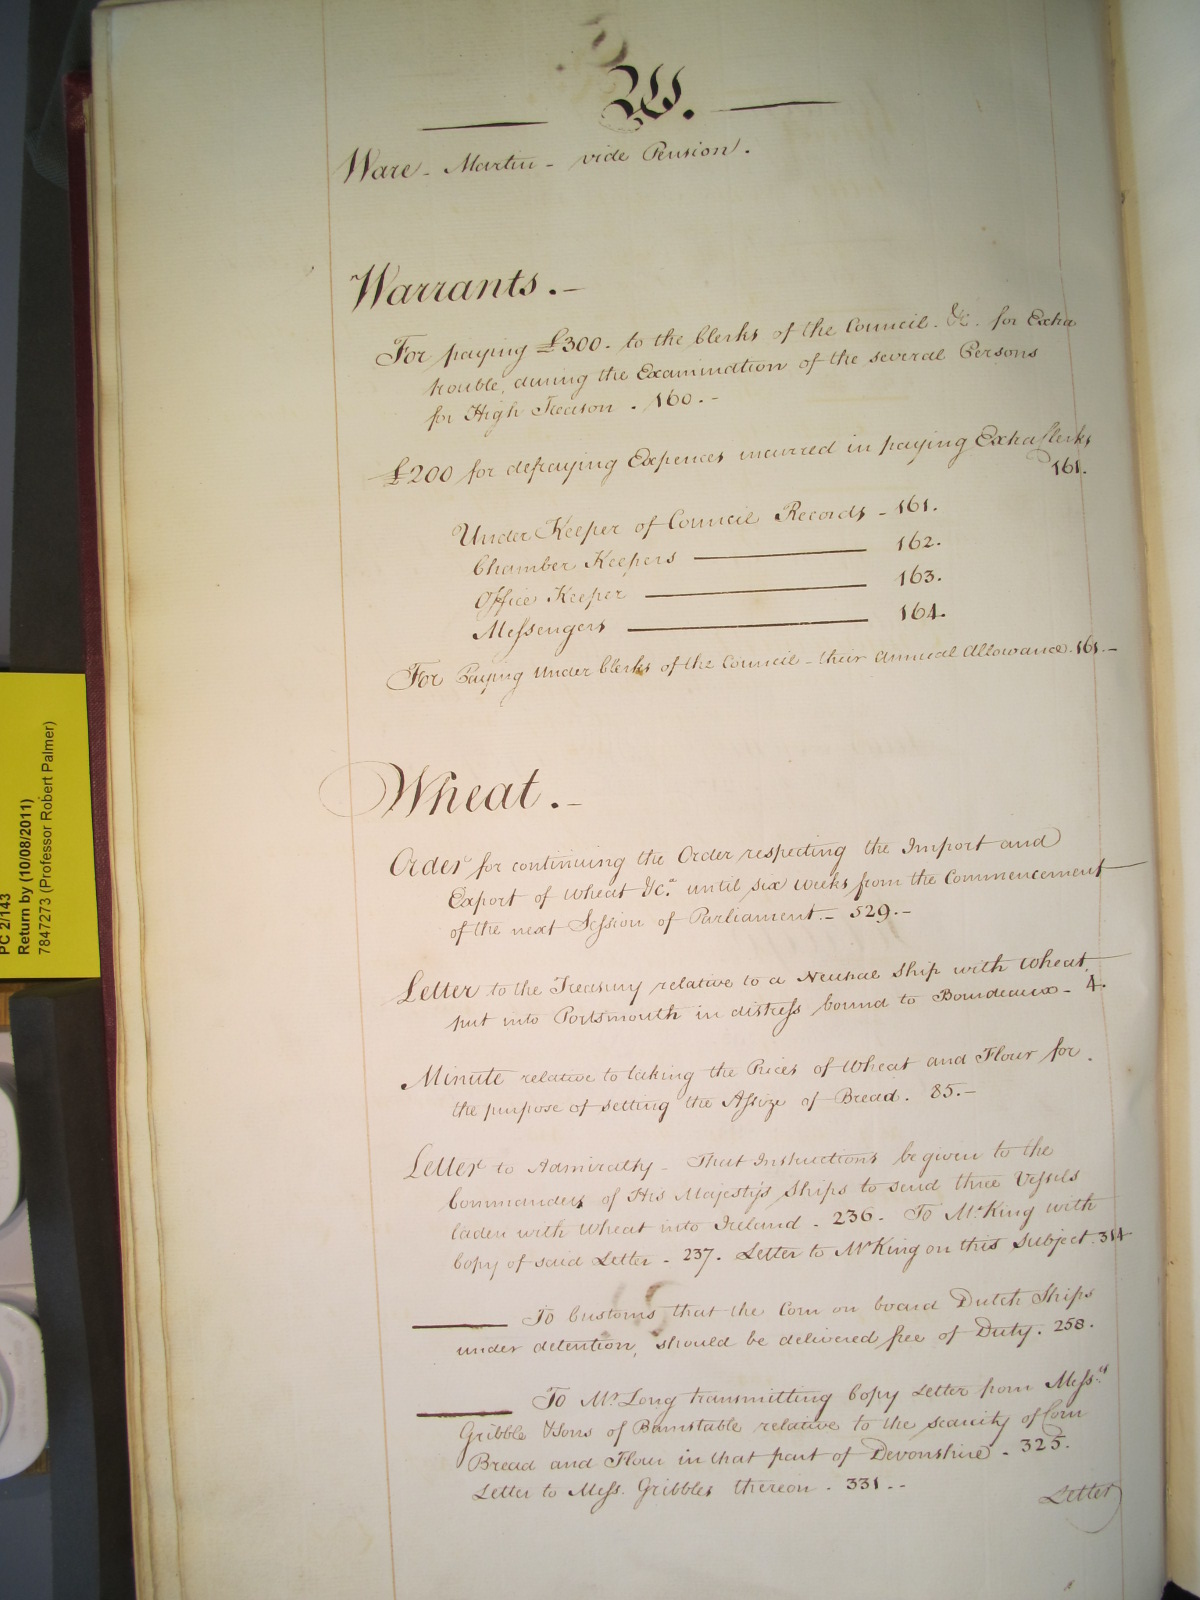 W.
Ware - Martin - vide Pension.
Warrants. -
For paying £300. to the Clerks of the Council. &c. for Extra
trouble, during the Examination of the several Persons
for High Treason. 160. -
£200 for defraying Expences incurred in paying Extra Clerks
161.
Under Keeper of Council Records - 161.
Chamber Keepers 162.
Office Keeper 163.
Messengers 164.
For Paying Under Clerks of the Council - their Annual Allowance. 161. -
Wheat. -
Order for continuing the Order respecting the Import and
Export of Wheat &c.a until six Weeks from the Commencement
of the next Session of Parliament. - 529. -
Letter to the Treasury relative to a Neutral Ship with Wheat,
put into Portsmouth in distress bound to Bourdeaux - 4.
Minute relative to taking the Prices of Wheat and Flour for
the purpose of setting the Assize of Bread. 85. -
Letter to Admiralty - That Instructions be given to the
Commanders of His Majesty's Ships to send three Vessels
laden with Wheat into Ireland - 236 - To Mr King with
Copy of said Letter - 237. Letter to Mr King on this Subject. 314
To Customs that the Corn on board Dutch Ships
under detention, should be delivered free of Duty. 258.
To Mr Long transmitting Copy Letter from Messrs
Gribble & Sons of Barnstable relative to the scarcity of Corn
Bread and Flour in that part of Devonshire - 325.
Letter to Mess. Gribbles thereon. 331. -
Letter
PC 2/143
Return by (10/08/2011)
7847273 (Professor Robert Palmer)